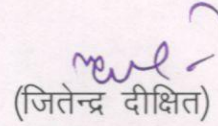 (जितेन्द्र दीक्षित)